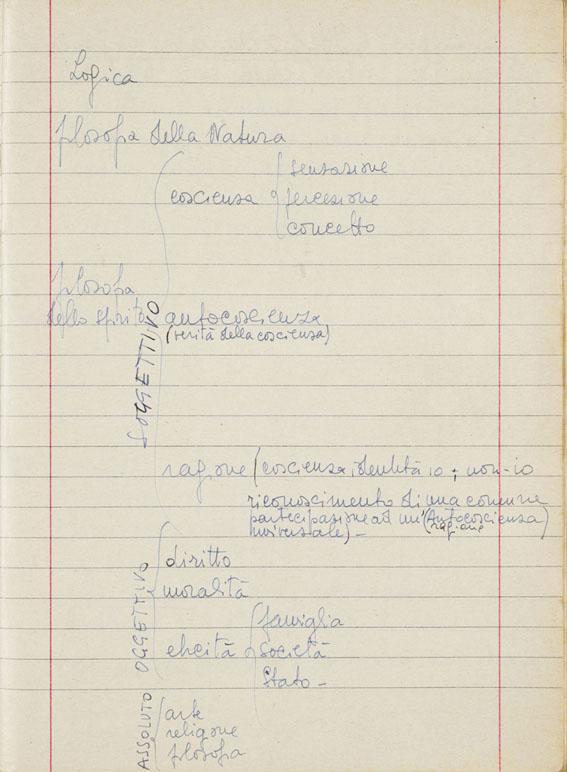 Logica
filosofia della Natura
coscienza
sensazione
percezione
concetto
filosofia
dello spirito
SOGGETTIVO
autocoscienza
(verità della coscienza)
ragione (coscienza identità io + non-io
riconoscimento di una comune
partecipazione ad un'(Autocoscienza)
(ragione
universale) -
OGGETTIVO
diritto
moralità
eticità
famiglia
società
Stato -
ASSOLUTO
arte
religione
filosofia